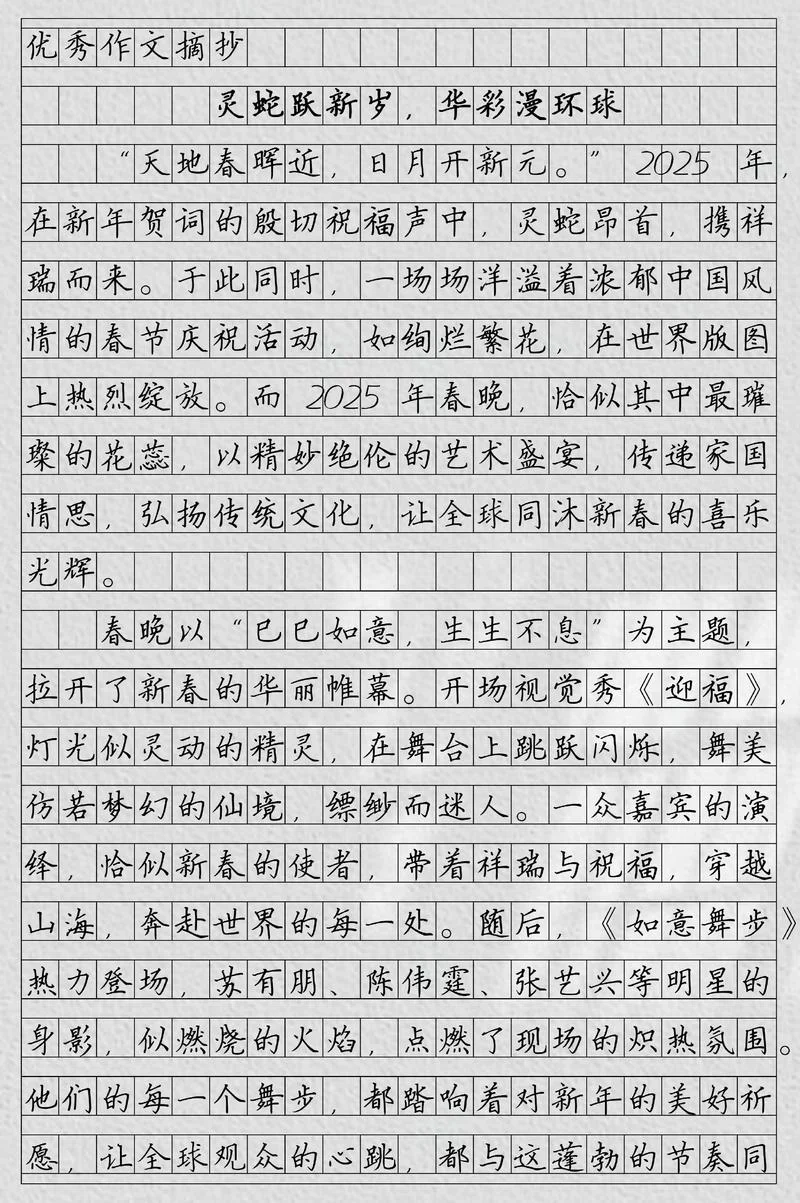 优秀作文摘抄
灵蛇跃新岁，华彩漫环球
“天地春晖近，日月开新元。” 2025 年，
在新年贺词的殷切祝福声中，灵蛇昂首，携祥
瑞而来。于此同时，一场场洋溢着浓郁中国风
情的春节庆祝活动，如绚烂繁花，在世界版图
上热烈绽放。而 2025 年春晚，恰似其中最璀
璨的花蕊，以精妙绝伦的艺术盛宴，传递家国
情思，弘扬传统文化，让全球同沐新春的喜乐
光辉。
春晚以“巳巳如意，生生不息”为主题，
拉开了新春的华丽帷幕。开场视觉秀《迎福》，
灯光似灵动的精灵，在舞台上跳跃闪烁，舞美
仿若梦幻的仙境，缥缈而迷人。一众嘉宾的演
绎，恰似新春的使者，带着祥瑞与祝福，穿越
山海，奔赴世界的每一处。随后，《如意舞步》
热力登场，苏有朋、陈伟霆、张艺兴等明星的
身影，似燃烧的火焰，点燃了现场的炽热氛围。
他们的每一个舞步，都踏响着对新年的美好祈
愿，让全球观众的心跳，都与这蓬勃的节奏同